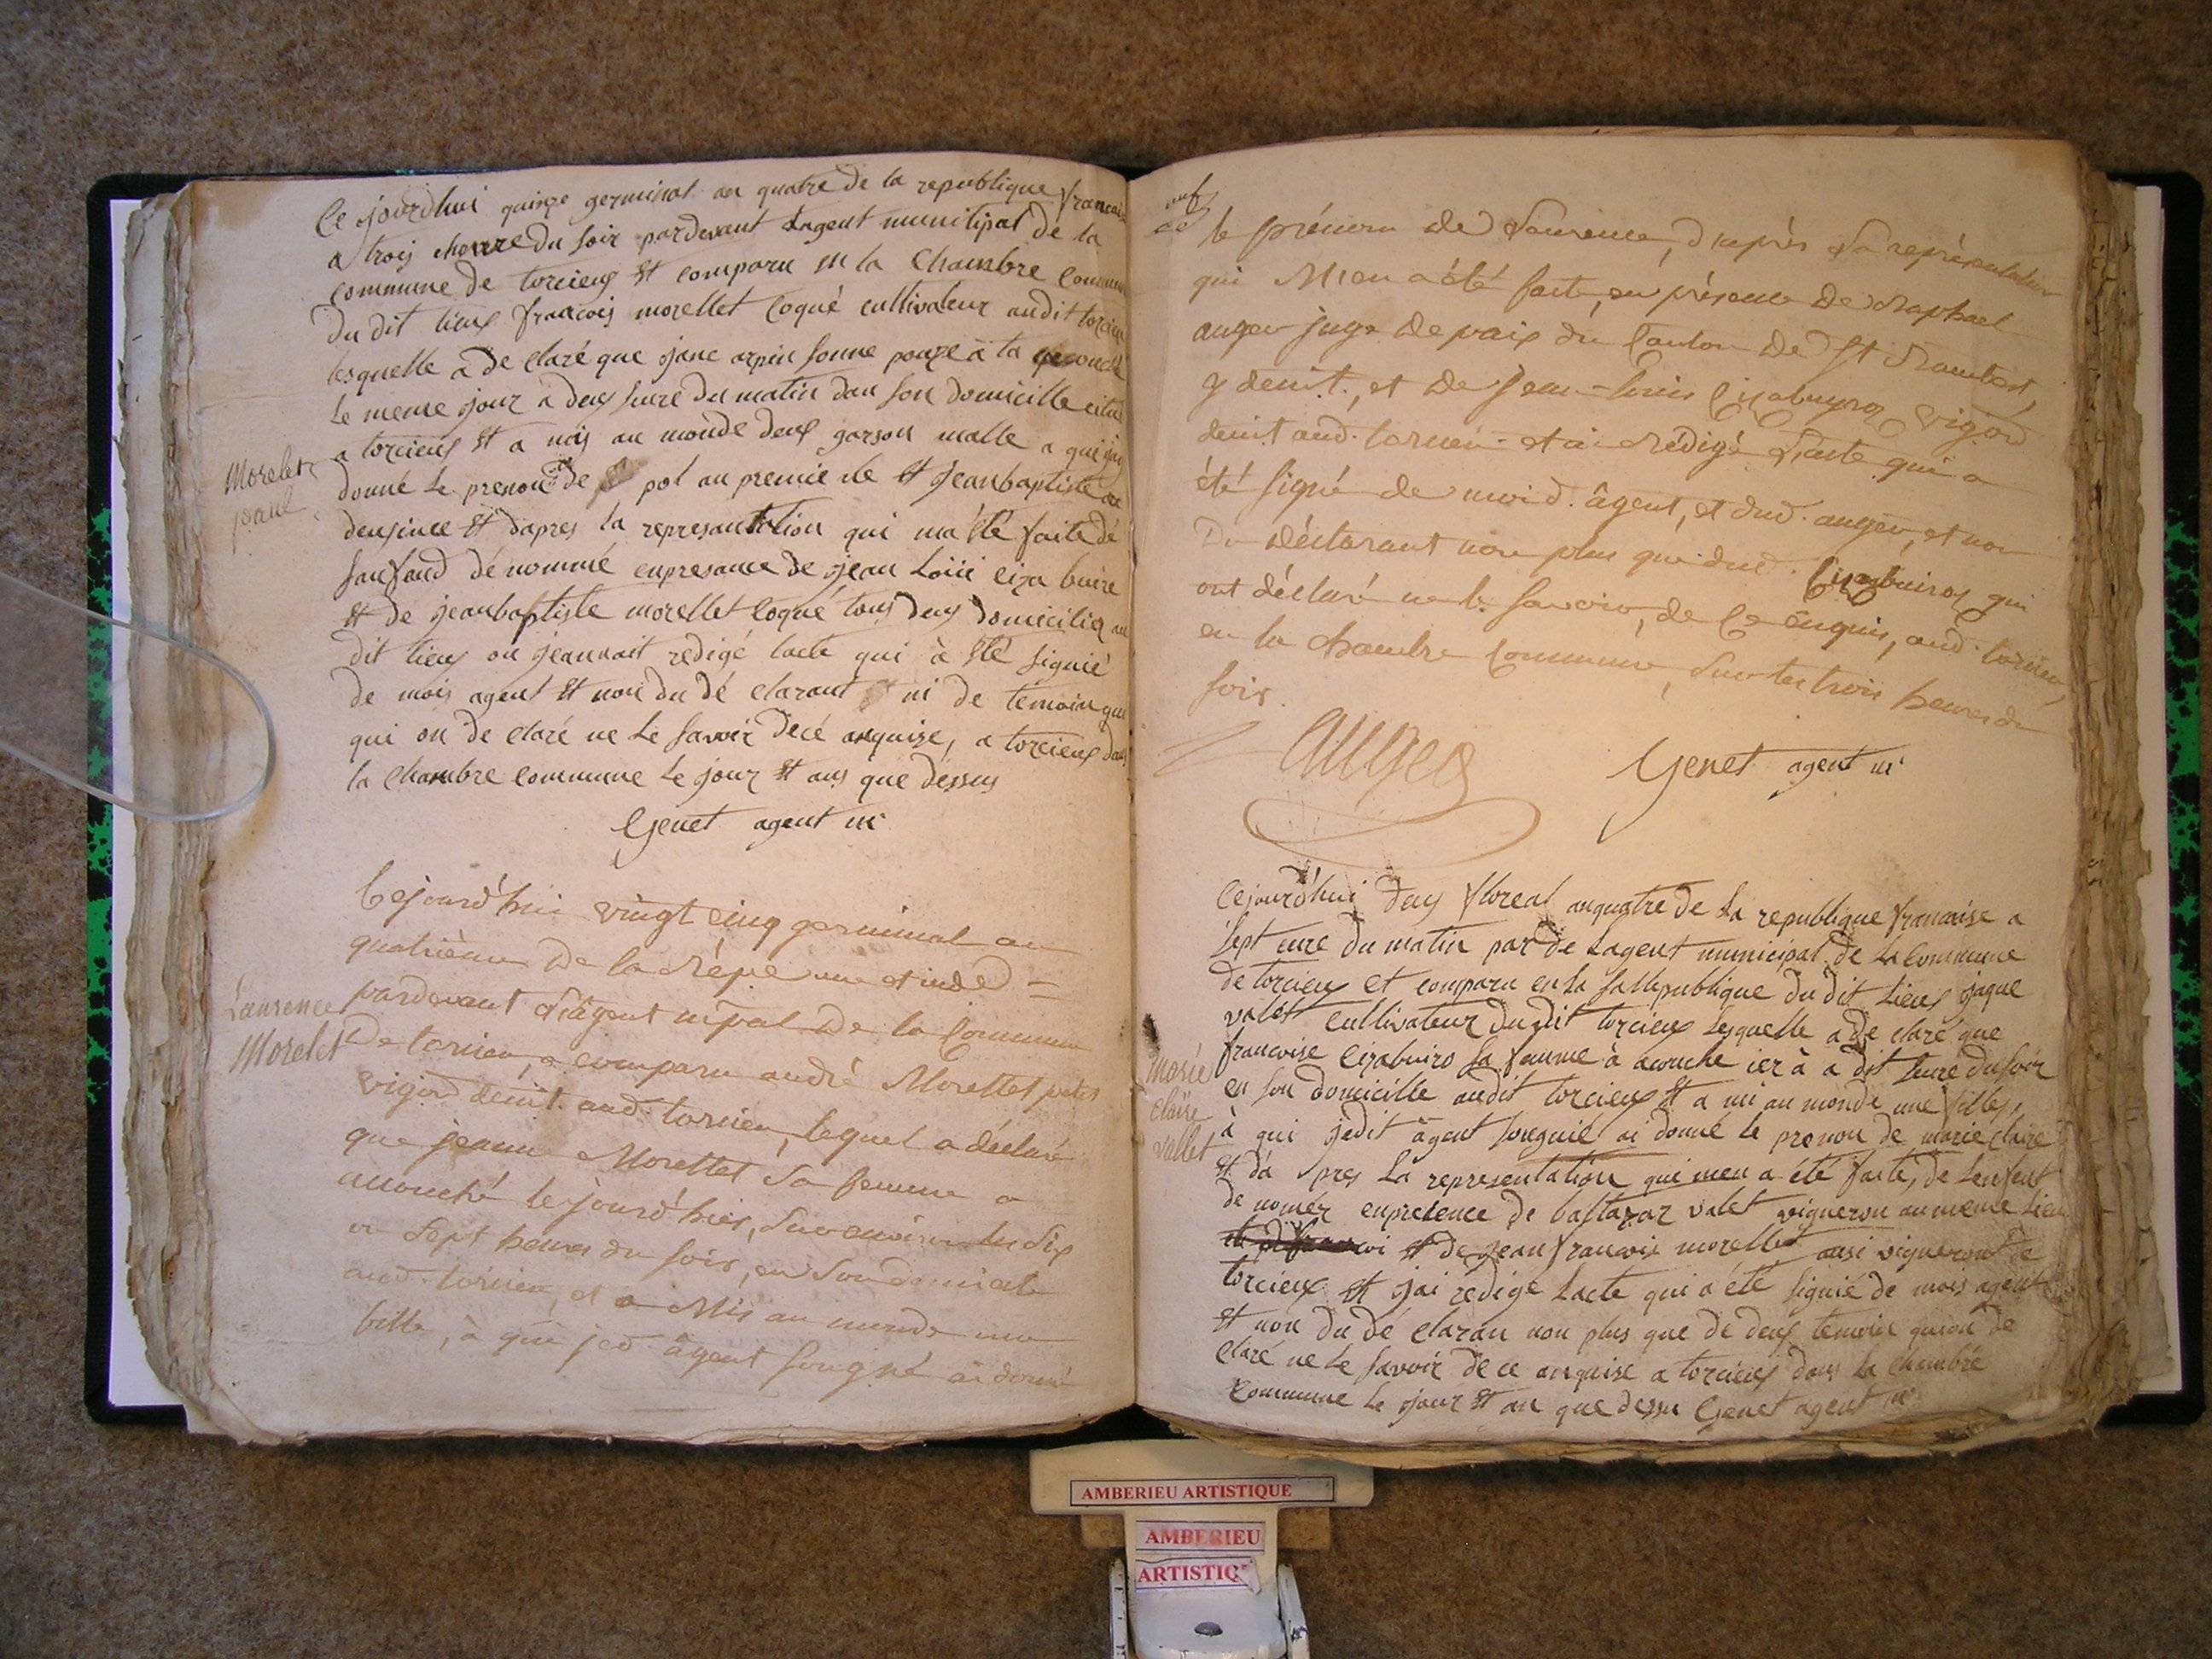 Ce jourdhui quinze germinal an quatre de la republique francaise
a trois heure du soir pardevant Lagent munitipal de la
commune de torcieu st comparu en la Chambre commune
du dit lieux francois morellet coqué cultivateur audit torcieux
lesquelle à de claré que jane arpin sonne a la
Le meme jour à deux heure du matin dan son domicille
a torcieux st a mis au monde deux garson malle a qui
Morelet
paul
donné Le prenon de pol au premie né st Jeanbaptiste au
deusieme st dapres la represantation qui ma été faite dé
dé nommé enpresance de jean Loüi ciza buire
st de jeanbaptiste morellet coqué tous deux domicilié au
dit lieux ou jeannait redigé lacte qui à sté signié
de mois agent st non du dé clarant ni de temoin que
qui on de claré ne Le savoir decé anquise, a torcieux dans
la chambre commune Le jour st ans que dessus
Genet agent m
Cejourd'huis vingt cinq germinal an
quatrième De la Répue une et indd =
Laurence
Morelet
pardevant L'âgent mpal De la Commune
De torcieu, a comparu andré Morellet
vigon deüt. aud. torcieu, lequel a déclaré
que jeanne Morellet Sa femme a
accouché Ce jourd'hui, Sur environ les Six
ou Sept heures du soir, en Son domicile
aud. torcieu, et a Mis au monde une
fille, à qui jed. âgent sousigné ai donné
le prénom de Laurence, d'après La représentation
qui M'en a été faite, en présence De Raphael
auger juge De paix du Canton De St Rambert,
y deüt., et De Jean-Louis Cizabuyros vigon
deüt aud. torcieu et ai Rédigé L'acte qui a
été signé de moi d. âgent, et dud. auger, et non
Du Déclarant non plus que dud. Cizabuiros qui
ont déclaré ne le savoir, de Ce enquis, aud. torcieu,
en la Chambre Commune, Sur les trois heures du
soir.
auger Genet agent m
Cejourd'hui deux floreal anquatre de La republique francaise a
sept eure du matin par de Lagent municipal de La Commune
de torcieux et comparu en La salle publique du dit Lieux jaque
valet Cultivateur dudit torcieux Lesquelle a de claré que
francoise Cizabuiro sa famme à acouche ier à a dit heure du soir
Marie
Claire
Vallet
en son domicille audit torcieux st a mi au monde une filles,
à qui jedit âgent sousignié ai donné Le prenon de marie claire
st da pres La representation qui men a été faite, de Lenfent
de nomér enpresence de baltazar valet vigneron au meme Lieu
st de jean francois morellet ausi vigneront de
torcieux st jai redigé Lacte qui a été signié de mois agent
st non du dé claran non plus que de deux temoin quion de
claré ne Le savoir de ce anquise a torcieux dans La chambre
commune Le jour st an que dessu Genet agent m
AMBERIEU ARTISTIQUE
AMBERIEU
ARTISTIQ